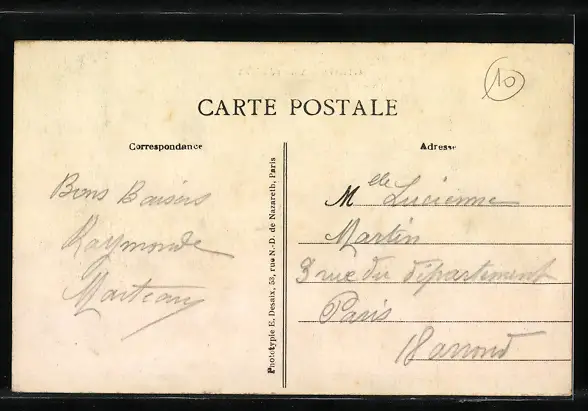 10
CARTE POSTALE
Correspondance
Adresse
Bons Baisers
Raymonde
Marteau
Phototypie E. Desaix, 53, rue N.-D. de Nazareth, Paris
Mlle Lucienne
Martin
3 rue du département
Paris
18 arrond